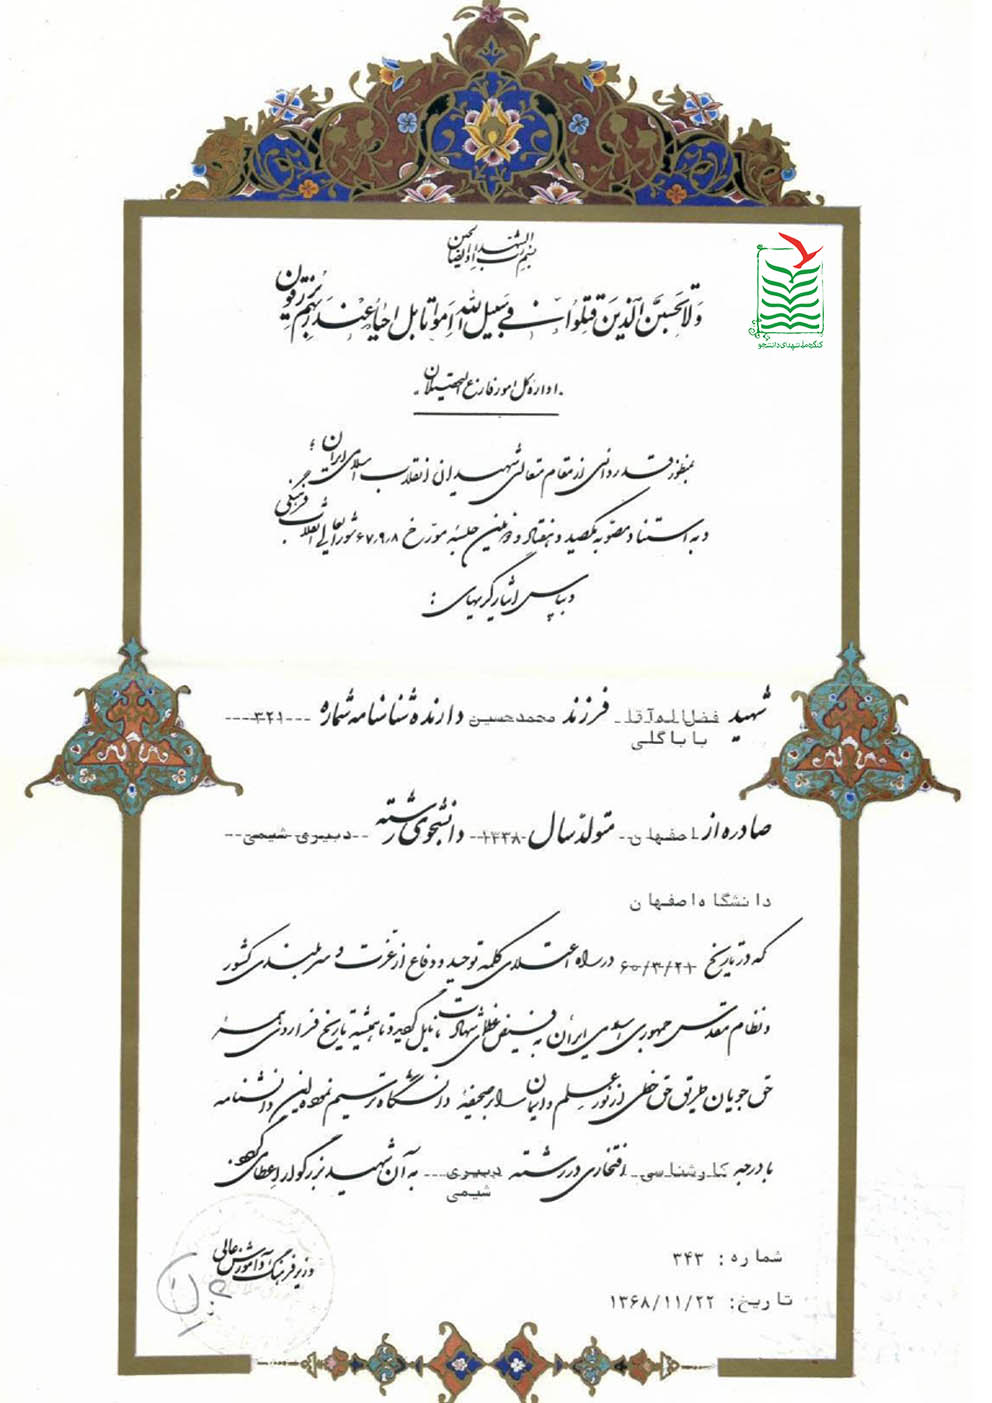 بسم رب الشهداء و الصالحین
کنگره ملی شهدای دانشجو
و لا تحسبن الذین قتلوا فی سبیل الله امواتا بل احیاء عند ربهم یرزقون
اداره کل امور فارغ التحصیلان
بمنظور قدردانی از مقام متعالی شهیدان انقلاب اسلامی ایران؛
و به استناد مصوبه یکصد و هفتاد و دومین جلسه مورخ ۶۷٫۹٫۸ شورایعالی انقلاب فرهنگی
و بپاس ایثارگریهای:
شهید فضل اله آقا باباگلی فرزند محمدحسین دارنده شناسنامه شماره ۳۲۱
صادره از اصفهان متولد سال ۱۳۳۸ دانشجوی رشته دبیری شیمی
دانشگاه اصفهان
که در تاریخ ۶۰/۳/۲۱ در راه اعتلای کلمه توحید و دفاع از عزت و سربلندی کشور
و نظام مقدس جمهوری اسلامی ایران به فیض عظمای شهادت نایل گردید تا همیشه تاریخ فراروی همه
حق جویان طریق حق خطی از نور علم و ایمان را بر صحیفه دانشگاه ترسیم نموده این دانشنامه
با درجه کارشناسی افتخاری در رشته دبیری شیمی به آن شهید بزرگوار اعطا می گردد.
وزیر فرهنگ و آموزش عالی
شماره: ۳۴۳
تاریخ: ۱۳۶۸/۱۱/۲۲